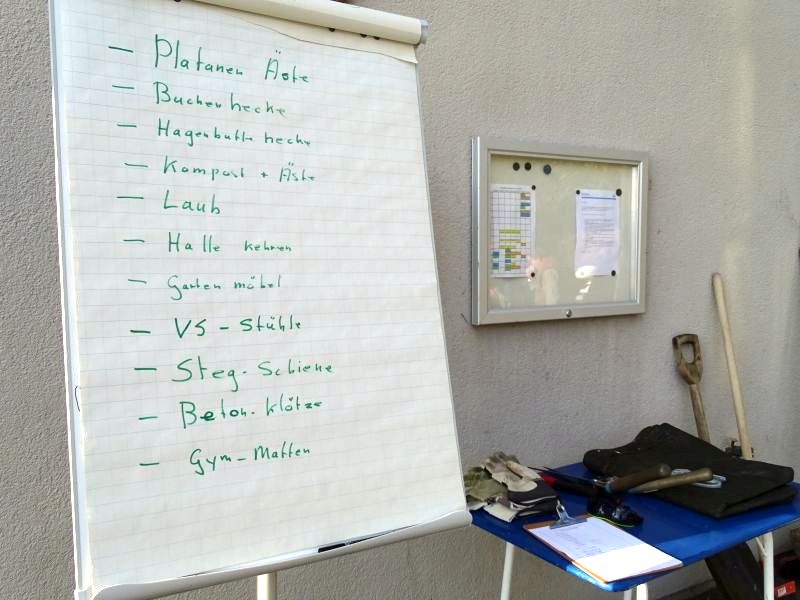 – Platanen Äste
– Buchenhecke
– Hagenbutt hecke
– Kompost + Äste
– Laub
– Halle kehren
– Garten möbel
– VS – Stühle
– Steg-Schiene
– Beton-Klötze
– Gym-Matten